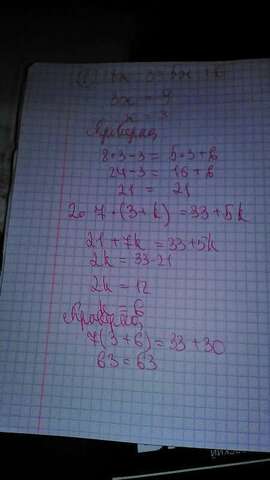 3x = 9
x = 3
Проверка
8·3-3 = 5·3+6
24-3 = 15+6
21 = 21
2. 7·(3+k) = 33+5k
21+7k = 33+5k
2k = 33-21
2k = 12
k = 6
Проверка
7(3+6) = 33+30
63 = 63